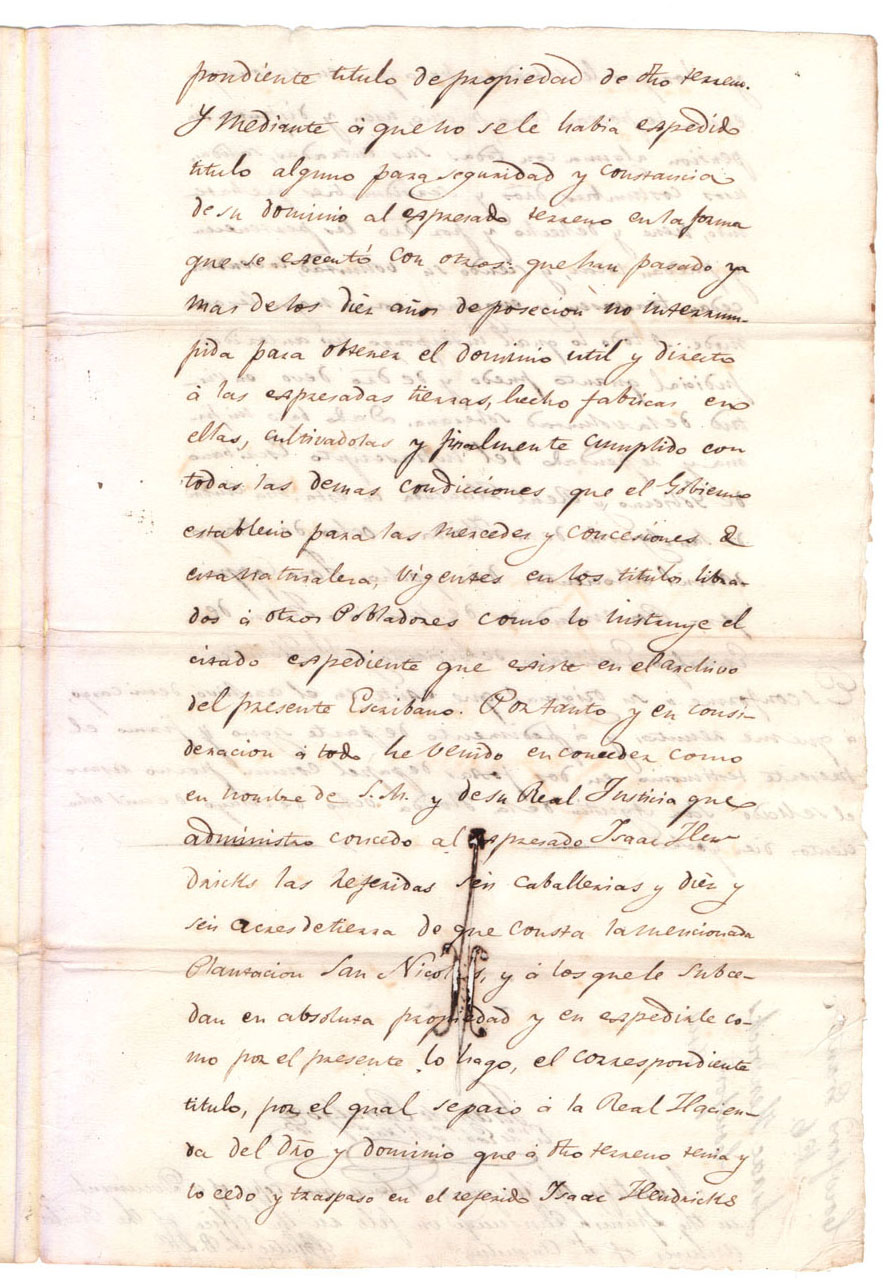 pondiente titulo de propiedad de dho terren.
Y Mediante á que no sele habia espedido
titulo alguno para seguridad y constancia
de su dominio al espresado terreno en la forma
que se executó con otros: que han pasado ya
mas de los diéz años de posecion no interrum-
pida para obtener el dominio util y directo
á las espresadas tierras, hecho fabricas en
ellas, cultivadolas y finalmente cumplido con
todas las demas condicciones que el Gobierno
establecio para las Mercedes y concesiones de
esta naturaleza, Vigentes en los titulos libra-
dos á otros Pobladores como lo instruye el
citado espediente que existe en el archivo
del presente Escribano. Por tanto y en consi-
deracion á todo he venido en conceder como
en nombre de S.M. y de su Real Justicia que
administro concedo al espresado Isaac Hen-
dricks las referidas seis caballerias y diéz y
seis acres de tierra de que consta la mencionada
Plantacion San Nicolas, y á los que le subce-
dan en absoluta propiedad y en espedirle co-
mo por el presente lo hago, el correspondiente
titulo, por el qual separo á la Real Hacien-
da del dro y dominio que á dho terreno tenia y
lo cedo y traspaso en el referido Isaac Hendricks